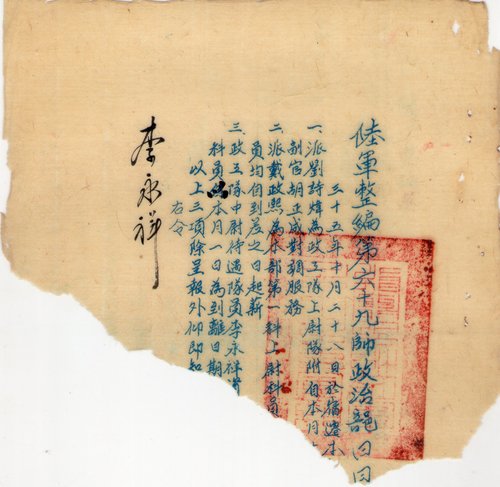 陸軍整編第六十九師政治部
三十五年十月二十八日於宿遷本
一、派劉詩煒為政工隊上尉隊附自本月
副官胡正成對調服務
二、派戴政熙為本部第一科上尉科員
員均自到差之日起薪
三、政工隊中尉待遇隊員李永祥
科員 本月一日為到離日期
以上三項除呈報外仰即知
右令
李永祥